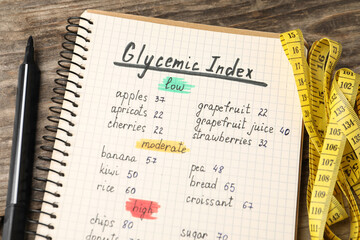 Glycemic Index
low
apples 37
apricots 22
cherries 22
grapefruit 22
grapefruit juice 40
strawberries 32
moderate
banana 57
kiwi 50
rice 60
pea 48
bread 65
croissant 67
high
chips 80
donuts
sugar 70